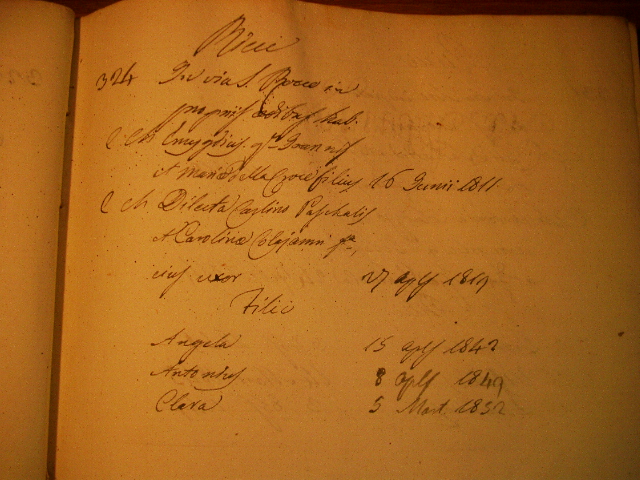 Ricci
324 In via S. Rocco in
propriis ædibus hab.
C. Ch Emygdius qm Joannis
et Mariæ della Croce filius 16 Junii 1811
C Ch Dilecta Carlino Paschalis
et Carolinæ Colajanni fa,
eius uxor 27 aplis 1819
Filii
Angela 15 aplis 1842
Antonius 8 aplis 1849
Clara 5 Mart 1852